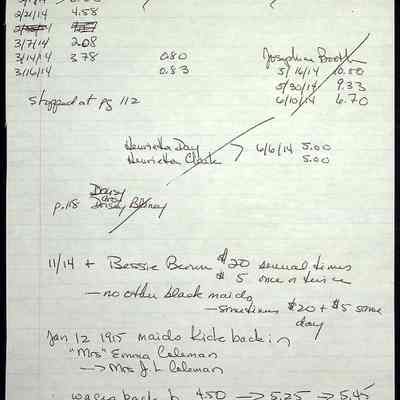 2/21/14 4.58
3/7/14 2.08
3/14/14 3.78 0.80
3/16/14 0.83
Josephine Booth
5/16/14 10.80
5/30/14 9.33
6/10/14 6.70
Stopped at pg 112
Henrietta Day 6/6/14 5.00
Henrietta Clark 5.00
Daisy
p. 118 Dorsey
11/14 + Bessie Brown $20 several times
$5 once or twice
— no other black maids
— sometimes $20 + $5 same
day
Jan 12 1915 maids Kick back in
"Mrs" Emma Coleman
→ Mrs J. L Coleman
wages back to 4.50 → 5.25 → 5.45